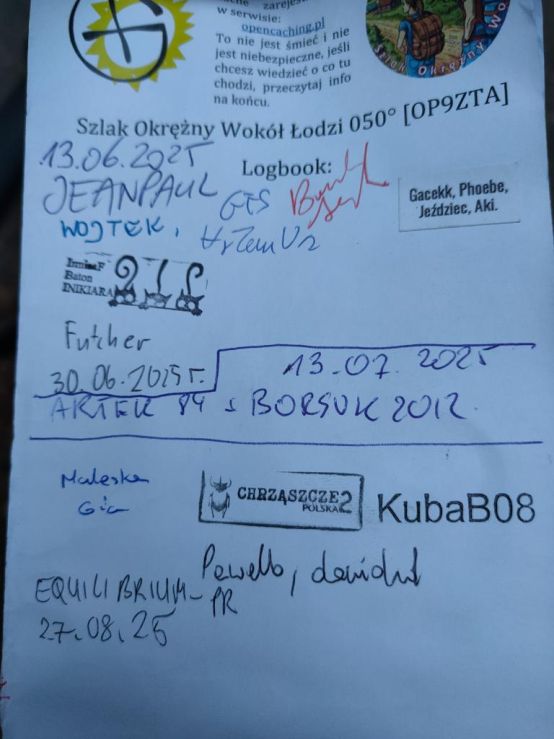 w serwisie:
opencaching.pl
To nie jest śmieć i nie
jest niebezpieczne, jeśli
chcesz wiedzieć o co tu
chodzi, przeczytaj info
na końcu.
Szlak Okrężny Wokół
Szlak Okrężny Wokół Łodzi 050° [OP9ZTA]
13.06.2025
Logbook:
JEANPAUL
GTS
Gacekk, Phoebe,
Jeździec, Aki.
WOJTEK,
IrminaF
Baton
INIKIARA
Futcher
30.06.2025r.
13.07.2025
ARTEK 84 & BORSUK 2012.
Maleska
Gia
CHRZĄSZCZE2
POLSKA
KubaB08
Pawełło, dawidut
EQUILIBRIUM-
PR
27.08.25